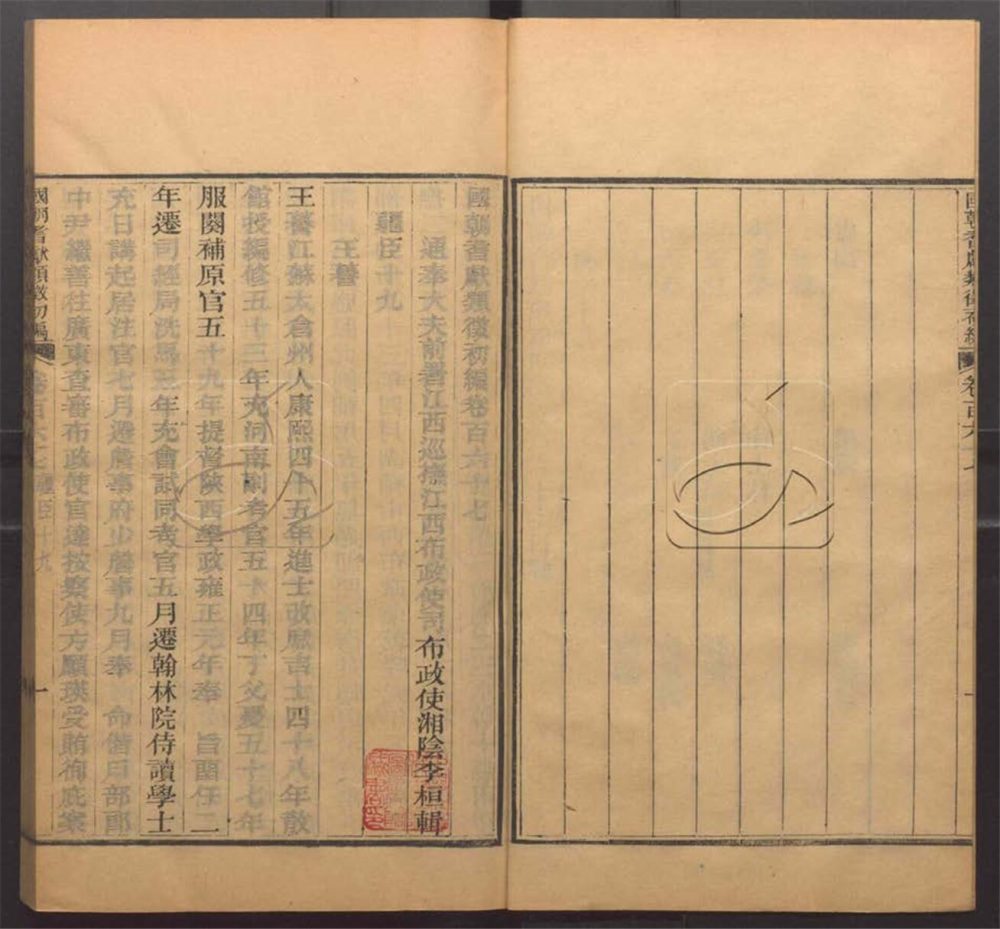 國朝耆獻類徵初編卷百六十七
通奉大夫前署江西巡撫江西布政使司布政使湘陰李桓輯
疆臣十九
王謩
王謩江蘇太倉州人康熙四十五年進士改庶吉士四十八年散
館授編修五十三年充河南副考官五十四年丁父憂五十七年
服闋補原官五十九年提督陝西學政雍正元年奉 旨留任二
年遷司經局洗馬五年充會試同考官五月遷翰林院侍讀學士
充日講起居注官七月遷詹事府少詹事九月奉 命偕曰部郎
中尹繼善往廣東查審布政使官達按察使方願瑛受賄徇庇案
國朝耆獻類徵初編 卷百六十七 疆臣十九 一